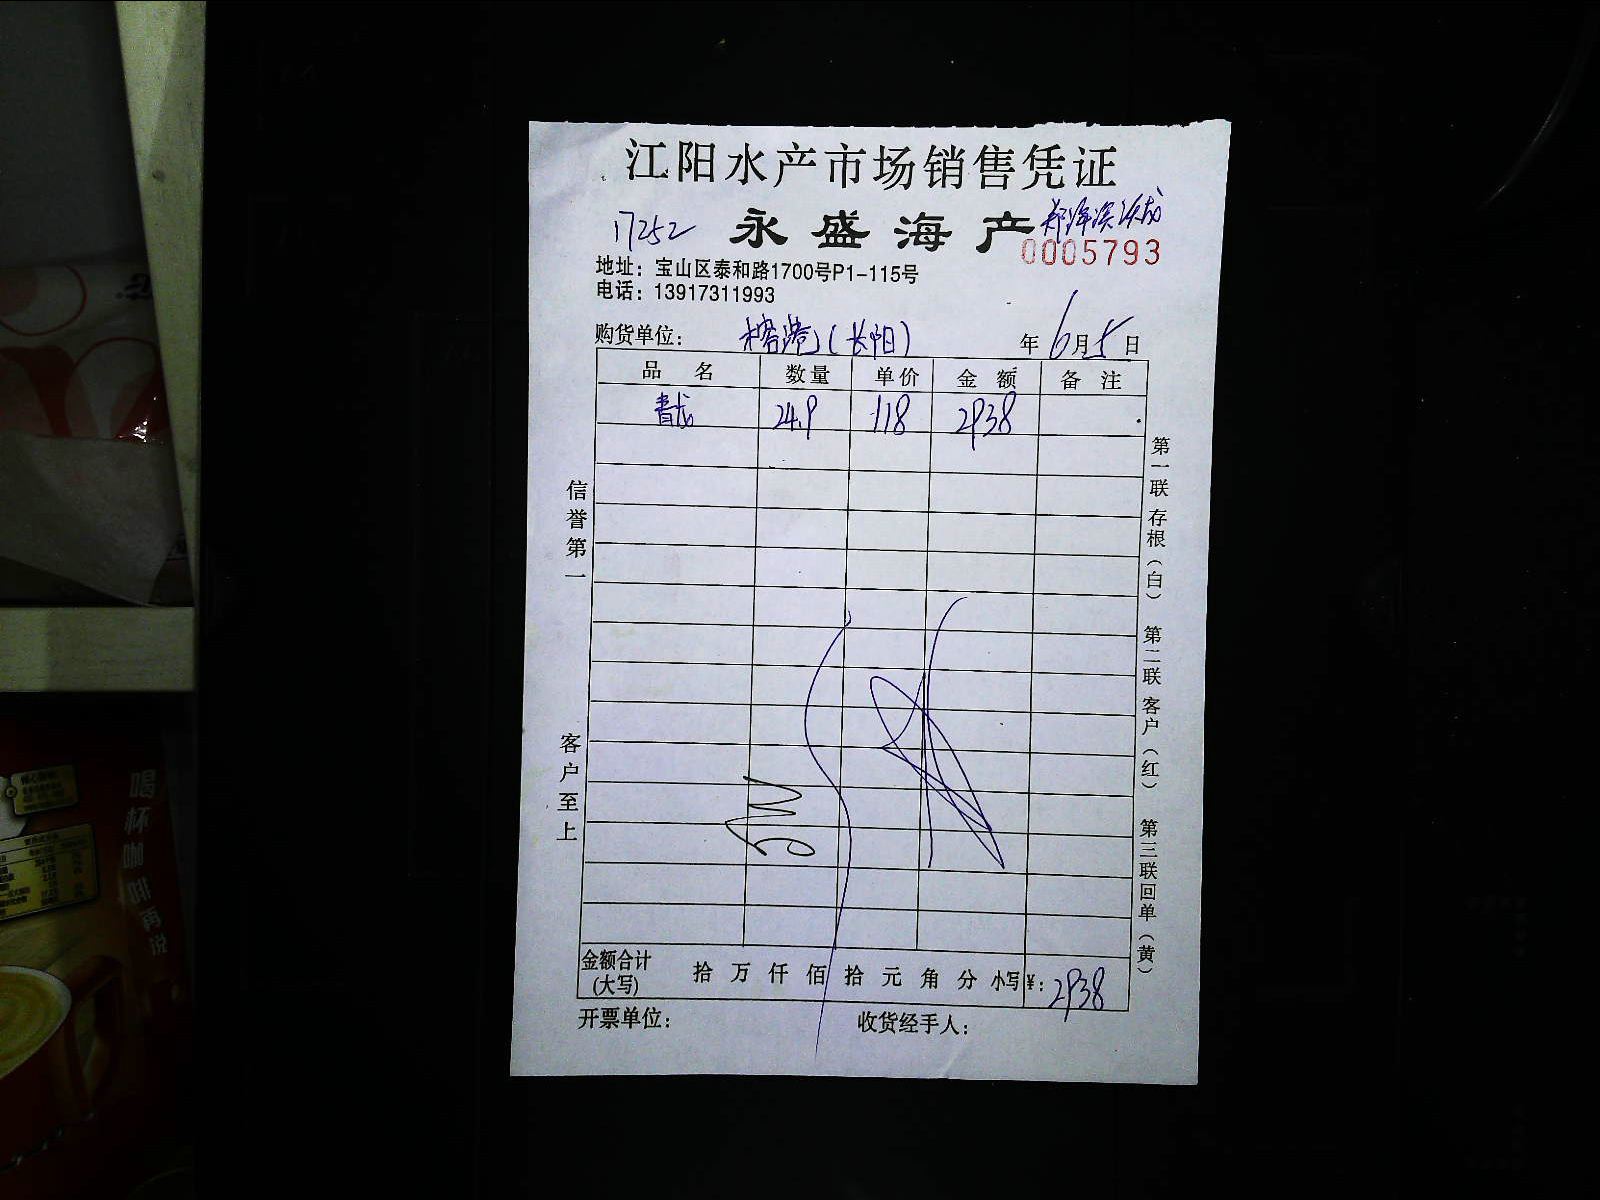 江阳水产市场销售凭证
17252 永盛海产
0005793
地址：宝山区泰和路1700号P1-115号
电话：13917311993
购货单位：（长阳） 年6月5日
品名 数量 单价 金额 备注
青 24.9 118 2938
信誉第一
客户至上
第一联存根（白）
第二联客户（红）
第三联回单（黄）
金额合计(大写) 拾万仟佰拾元角分 小写¥：2938
开票单位： 收货经手人：
喝杯咖啡再说